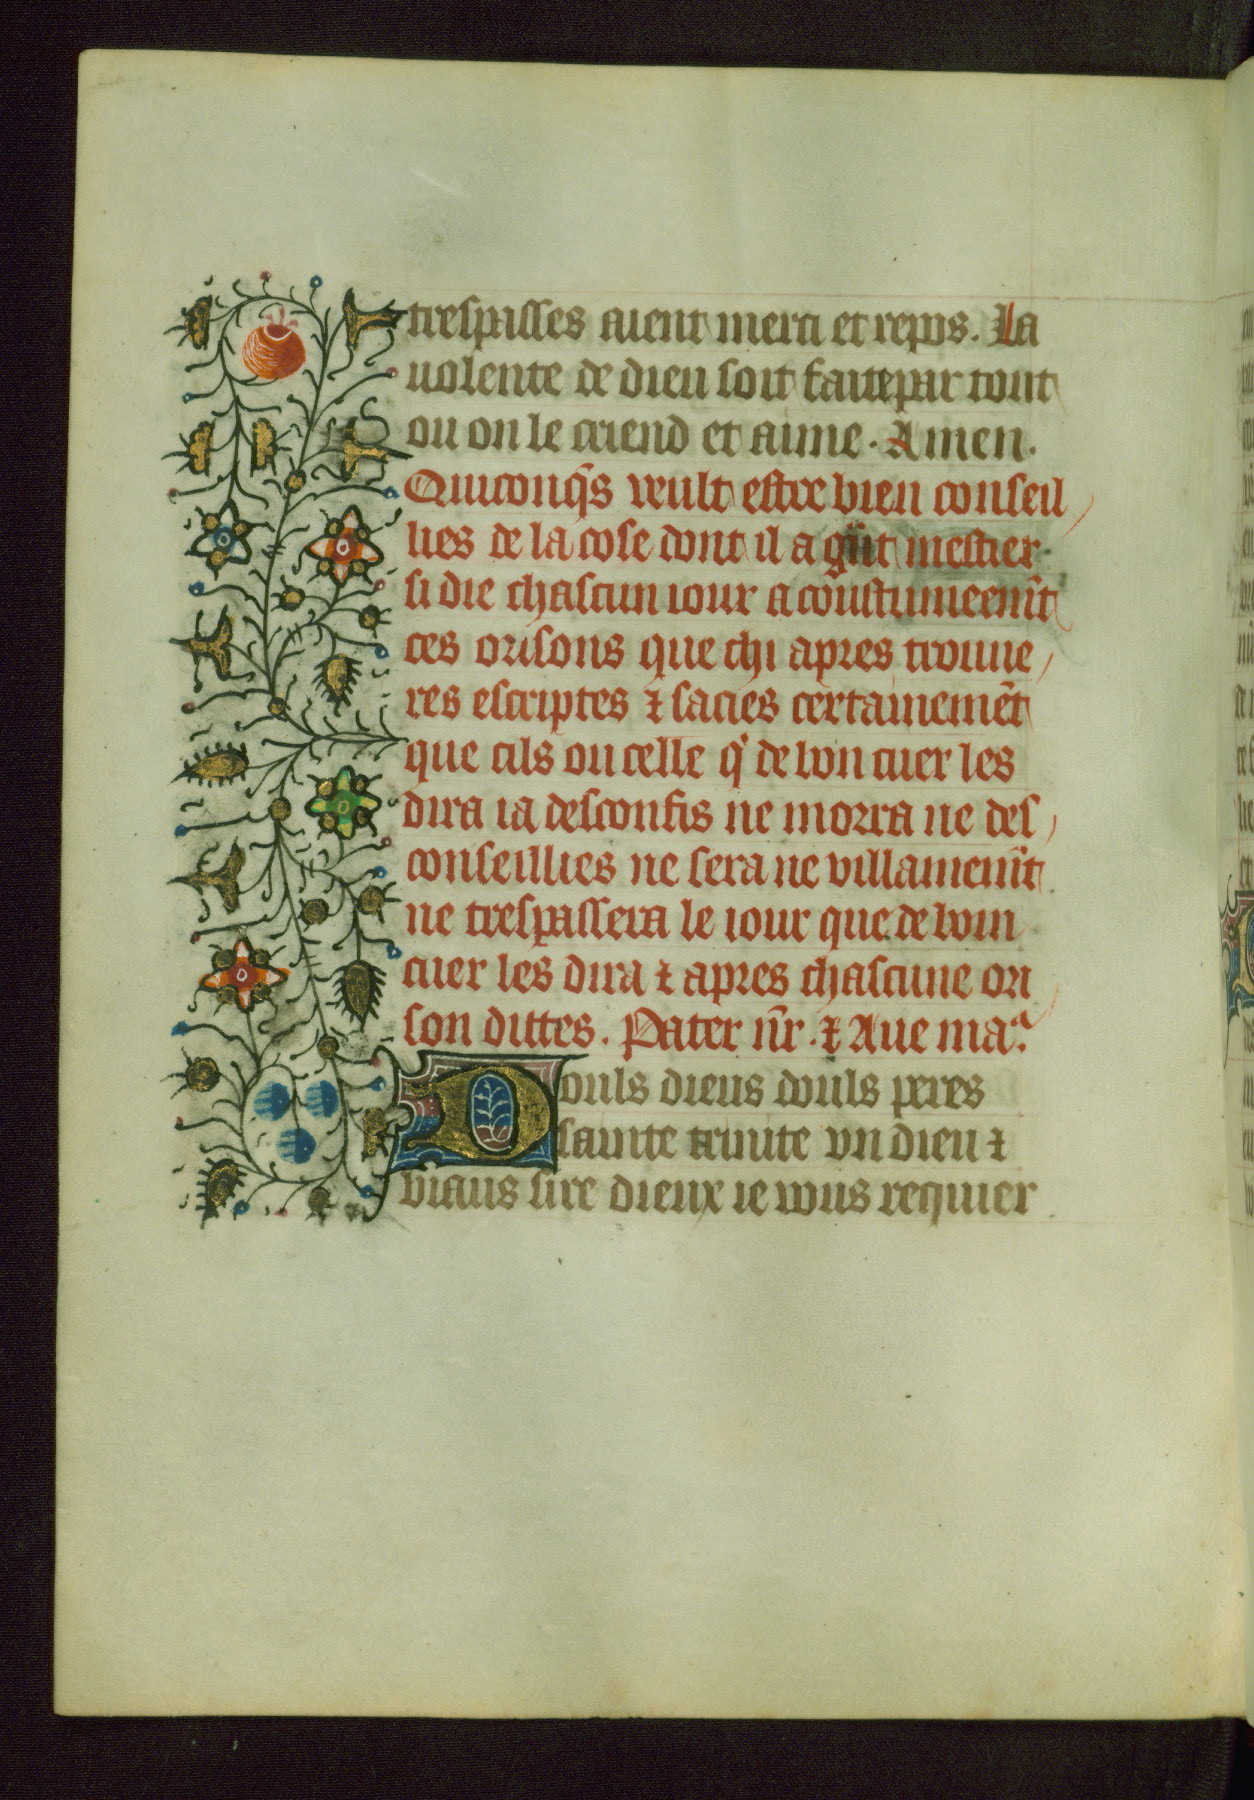 trespasses aient merci et repos. La
uolente de dieu soit faite par tout
ou on le crient et aime. Amen.
Quiconq̃s veult estre bien conseil
lies de la cose dont il a gñt mestier
si die chascun iour acoustumeem̃t
ces orisons que chi apres trouue
res escriptes ⁊ sacies certainemẽt
que cils ou celle qͥ de bon cuer les
dira ia desconfis ne morra ne des
conseillies ne sera ne villainem̃t
ne trespassera le iour que de boin
cuer les dira ⁊ apres chascune ori
son dittes. Pater nr̃. ⁊ Aue maᵃ.
Douls dieus douls peres
sainte trinite vn dieu ⁊
biaus sire dieux ie vous requier